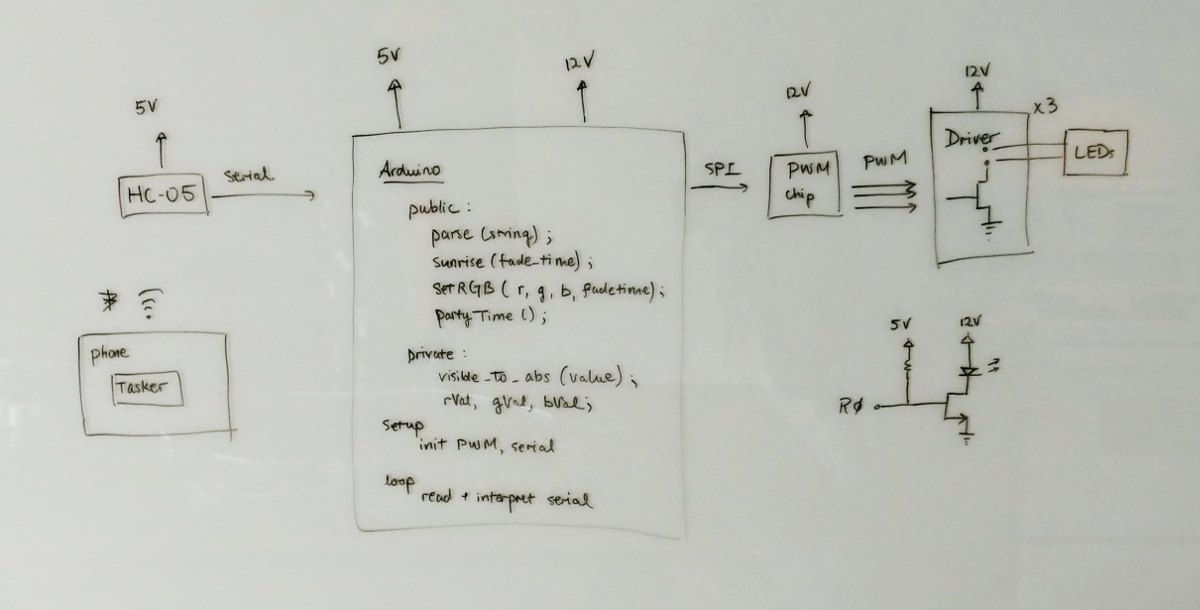 5V
HC-05
serial
phone
Tasker
5V
12V
Arduino
public :
parse (string) ;
sunrise (fade_time) ;
setRGB ( r, g, b, fadetime) ;
partyTime () ;
private :
visible_to_abs (value) ;
rVal, gVal, bVal;
setup
init PWM, serial
loop
read + interpret serial
SPI
12V
PWM
chip
PWM
12V
x3
Driver
LEDs
5V
12V
RØ